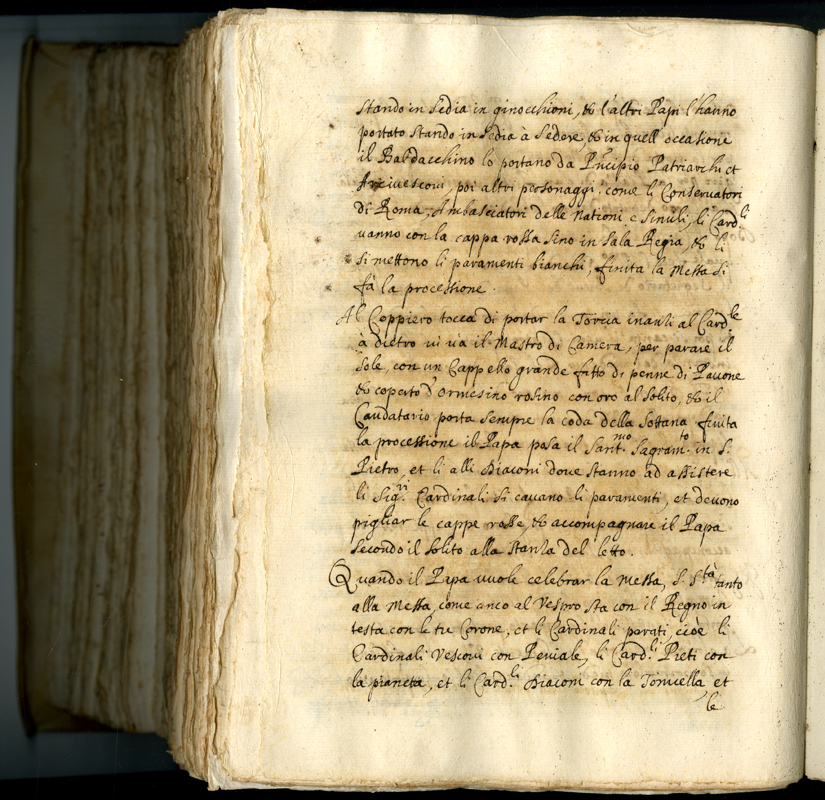 stando in sedia in ginocchioni, et l'altri Papi l'hanno
portato stando in sedia à sedere, et in quell'occasione
il Baldacchino lo portano da Principio Patriarchi et
Arcivescovi, poi altri personaggi come li Conservatori
di Roma, Ambasciatori delle nationi e simili, li Card.li
vanno con la cappa rossa sino in Sala Regia, et li
si mettono li paramenti bianchi, finita la Messa si
fà la processione.
Al Coppiero tocca di portar la Torcia inanti al Card.le
à dietro vi và il Mastro di Camera, per parare il
sole, con un Cappello grande fatto di penne di Pavone
et coperto d'ormesino rosino con oro al solito, et il
Caudatario porta sempre la coda della sottana finita
la processione il Papa posa il Sant.mo Sagram.to in S.
Pietro, et li alli Diaconi dove stanno ad assistere
li Sig.ri Cardinali si cavano li paramenti, et devono
pigliar le cappe rosse, et accompagnare il Papa
secondo il solito alla stanza del letto.
Quando il Papa vuole celebrar la Messa, S. S.tà tanto
alla Messa, come anco al Vespro sta con il Regno in
testa con le tre Corone, et li Cardinali parati, cioè li
Cardinali Vescovi con Peniale, li Card.li Preti con
la pianeta, et li Card.li Diaconi con la Tonicella et
le